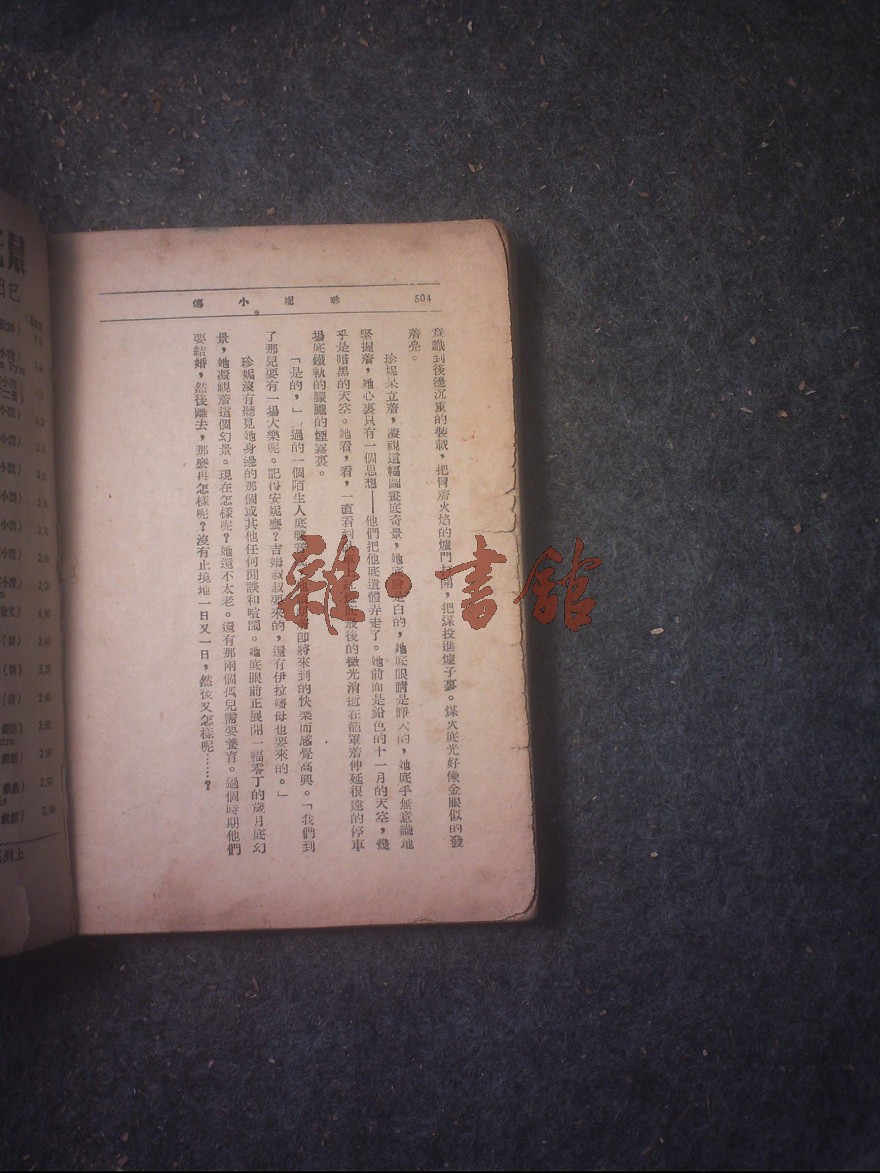 珍妮小傳
504
意識到後邊沉重的裝載，把冒着火焰的爐門打開，把煤投進爐子裏。煤火底光好像金眼似的發
着亮。
珍妮呆立着，凝視這幅圖畫底奇景，她底臉是白的，她底眼睛是睜大的，她底手無意識地
緊握着，她心裏只有一個思想——他們把他底遺體弄走了。她前面是鉛色的十一月的天空，幾
乎是暗黑的天空。她看，看，一直看到 最後的微光消逝在籠罩着伸延很遠的停車
場底鐵軌的朦朧的煙霧裏。
「是的，」 過的一個陌生人底聲 卽將來到的快樂而感覺高興。「我們到
了那兒要有一場大樂呢。記得安妮麽？吉姆叔叔要來的，還有伊拉嬸母也要來的。」
珍妮沒有聽見她身邊的那個或其他任何閒談和喧鬧。她底眼前正展開一幅零丁的歲月底幻
景，她凝視着這個幻景。現在怎樣呢？她還不太老。還有那兩個孤兒需要養育。過個時期他們
要結婚，然後離去，那麽再怎樣呢？沒有止境地一日又一日，然後又怎樣呢……？
晨
巴
小說）
小說）
小說）
小說）
小說）
小說）
散文） 4.80
（詩） 3.40
（詩）
（詩）
戲劇） 2.50
戲劇） 2.90
戲劇）
戲劇）
系列上
雜·書館